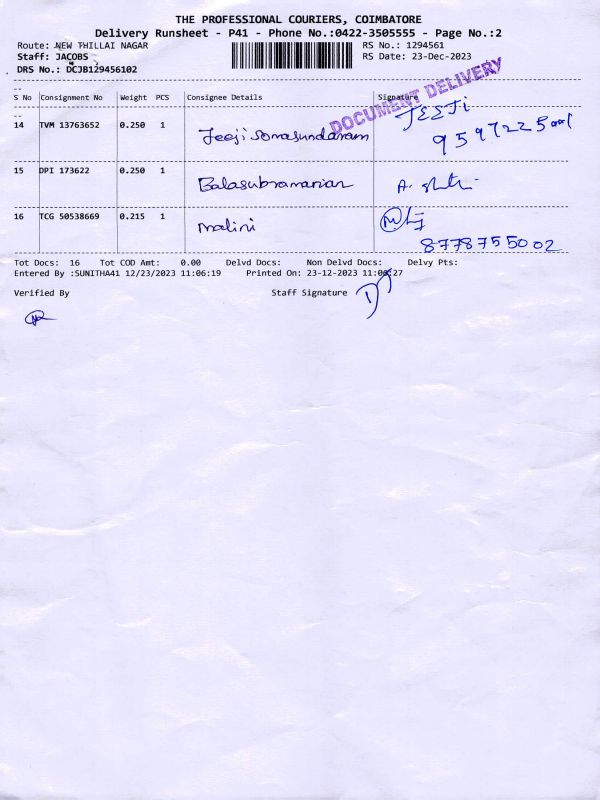 THE PROFESSIONAL COURIERS, COIMBATORE
Delivery Runsheet - P41 - Phone No.:0422-3505555 - Page No.:2
Route: NEW THILLAI NAGAR RS No.: 1294561
Staff: JACOBS RS Date: 23-Dec-2023
DRS No.: DCJB129456102
DOCUMENT DELIVERY
S No Consignment No Weight PCS Consignee Details Signature
14 TVM 13763652 0.250 1 Jeeji Somasundaram JEEJI
15 DPI 173622 0.250 1 Balasubramanian
16 TCG 50538669 0.215 1 Malini
8778755002
Tot Docs: 16 Tot COD Amt: 0.00 Delvd Docs: Non Delvd Docs: Delvy Pts:
Entered By :SUNITHA41 12/23/2023 11:06:19 Printed On: 23-12-2023 11:06:27
Verified By Staff Signature